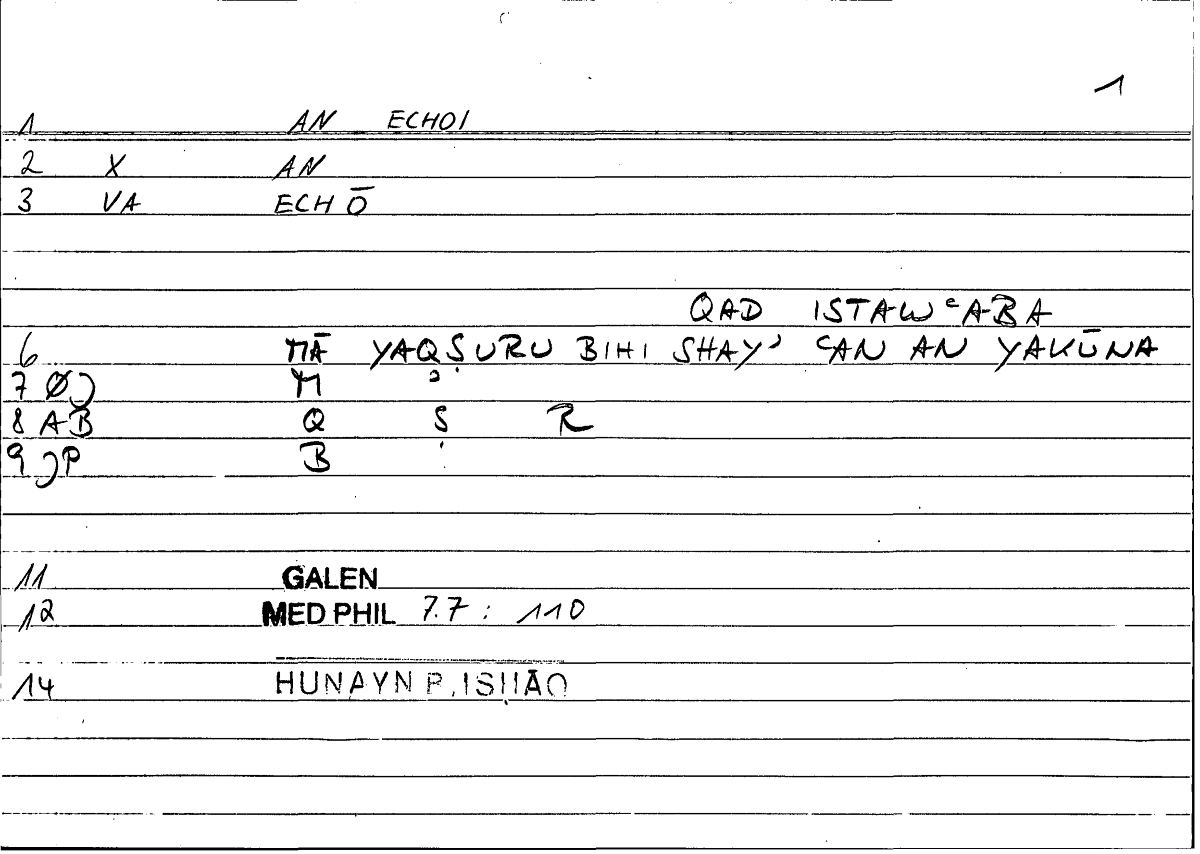 1
1 AN ECHOI
2 X AN
3 VA ECHŌ
QAD ISTAWʿABA
6 MĀ YAQṢURU BIHI SHAYʾ ʿAN AN YAKŪNA
7 Ø) M ʾ
8 AB Q Ṣ R
9 )P B
11 GALEN
12 MED PHIL 7.7 : 110
14 HUNAYN B. ISḤĀQ